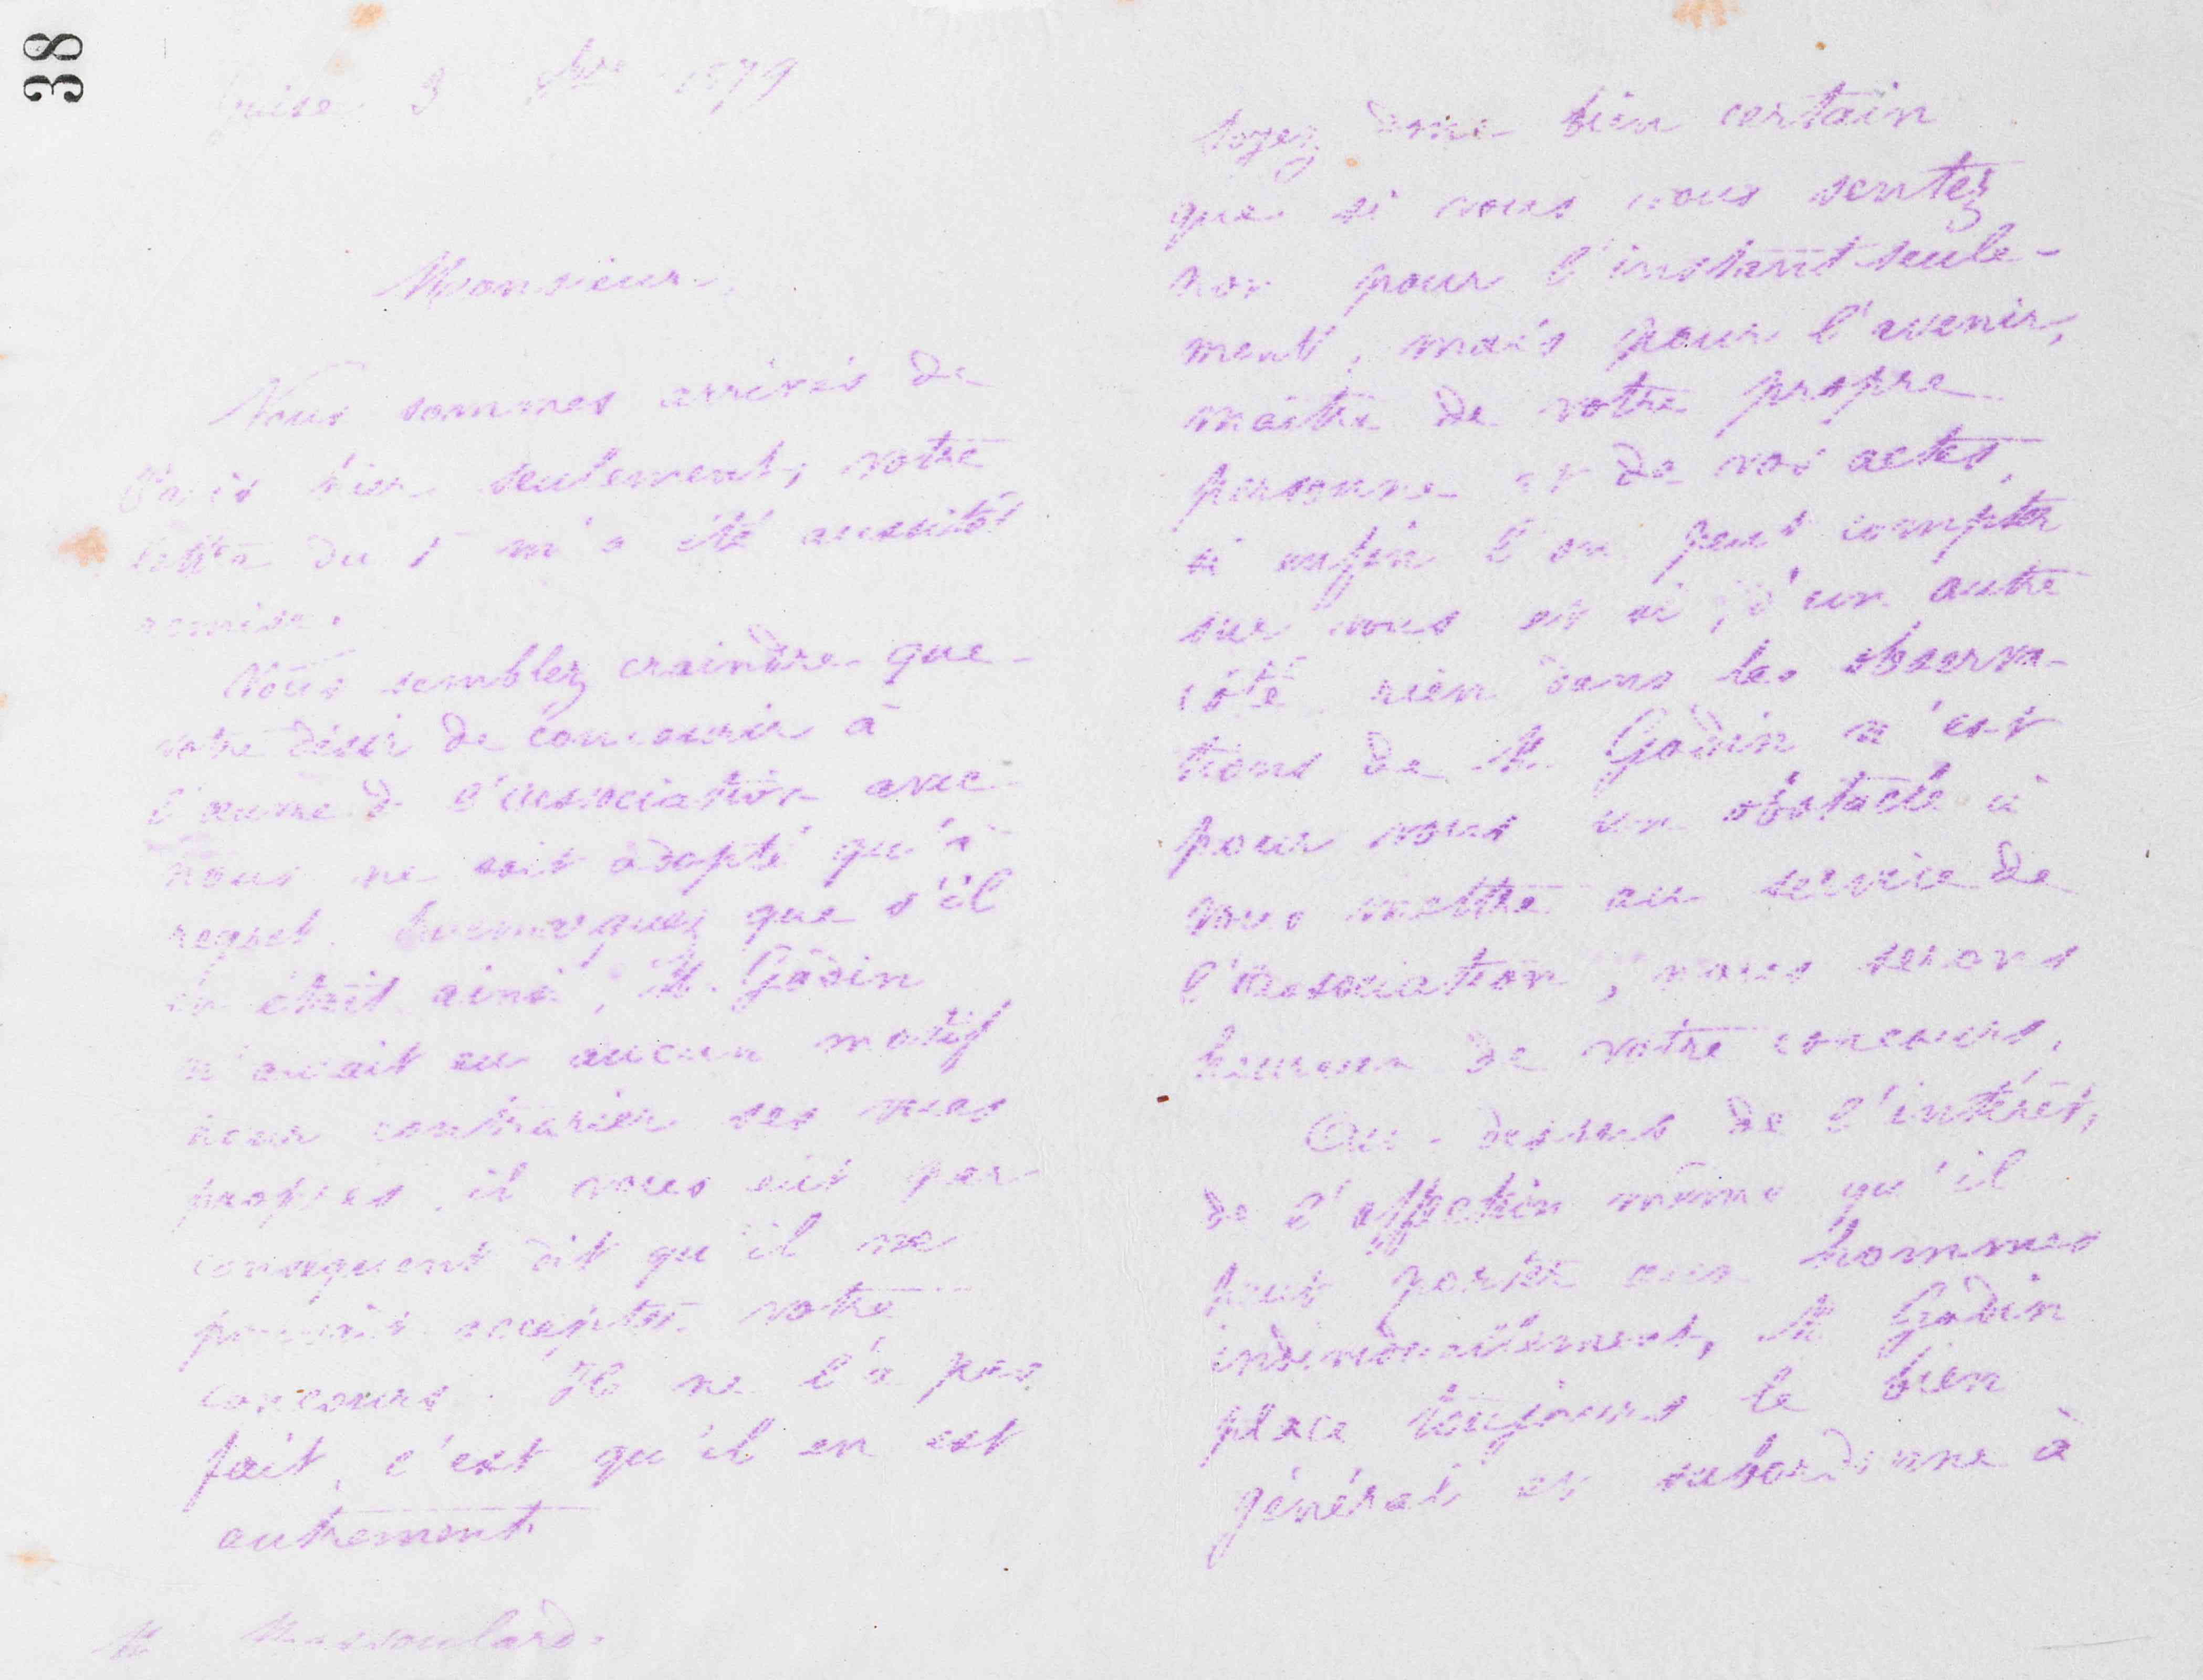 38
Guise 3 9bre 1879
Monsieur,
Nous sommes arrivés de
Paris hier seulement, votre
lettre du 1er m'a été aussitôt
remise.
Vous semblez craindre que
votre désir de concourir à
l'œuvre d l'association avec
nous ne soit adopté qu'à
regret. Remarquez que s'il
en était ainsi, M. Godin
n'avait eu aucun motif
pour contrarier ses vues
propres, il vous eût par
conséquent dit qu'il ne
pouvait accepter votre
concours. Il ne l'a pas
fait, c'est qu'il en est
autrement
M Massoulard.
Soyez donc bien certain
que si vous vous sentez
non pour l'instant seule-
ment, mais pour l'avenir,
maître de votre propre
personne et de vos actes,
si enfin l'on peut compter
sur vous et si, d'un autre
côté rien dans les observa-
tions de M. Godin n'est
pour vous un obstacle à
vous mettre au service de
l'association, nous serons
heureux de votre concours.
Au-dessus de l'intérêt,
de l'affection même qu'il
peut porter aux hommes
individuellement, M Godin
place toujours le bien
général et subordonne à